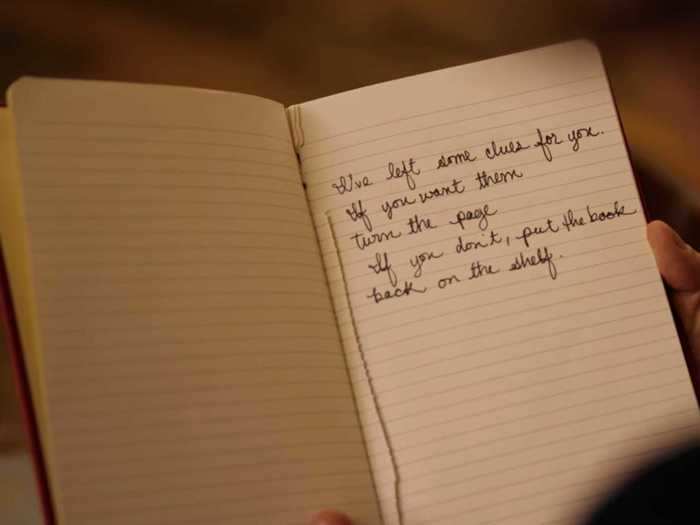 I've left some clues for you.
If you want them
turn the page
If you don't, put the book
back on the shelf.